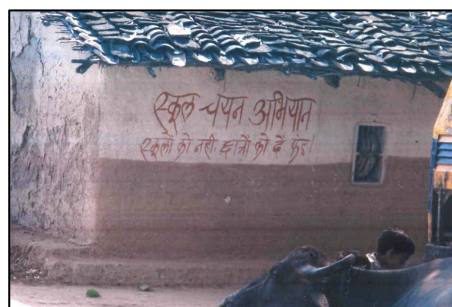 स्कूल चयन अभियान
स्कूलों को नहीं, छात्रों को दें फंड।